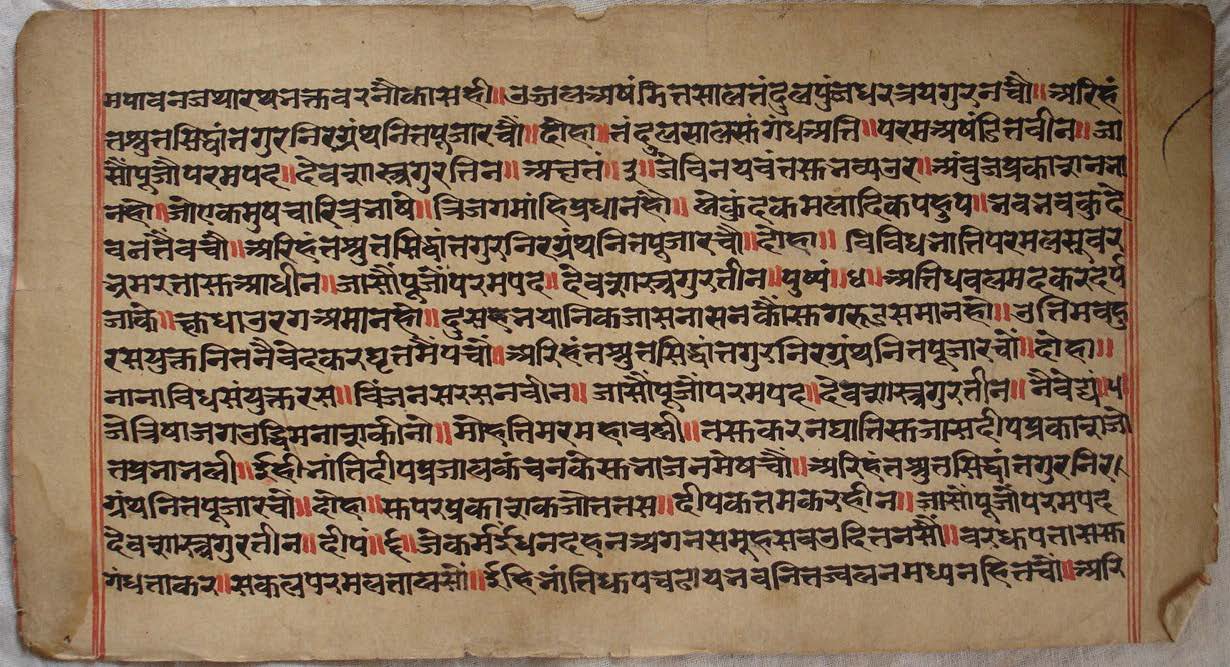 मपावनजथारथनक्तवरनौकासही॥उजलअषंमितसालतंदुलपुंजधरत्रयगुरनचौ॥अरिहं
तश्रुतसिद्धांतगुरनिरग्रंथनितपूजारचौ॥दोहा॥तंदुलसालसुगंधअति॥परमअषंडितवीन॥जा
सौंपूजौंपरमपद॥देवशास्त्रगुरतिन॥अक्षतं॥३॥जेविनयवंतसुभव्यउर॥अंबुजप्रकाशनभा
नहौ॥जेएकमुषचारित्रभाषे॥त्रिजगमांहिप्रधानहौ॥लेकुंदकमलादिकपहुप॥भवभवकुवे
वनतैवचौ॥अरिहंतश्रुतसिद्धांतगुरनिरग्रंथनितपूजारचौ॥दोहा॥विविधभांतिपरमलसुवर
भ्रमरतासुआधीन॥जासौंपूजौंपरमपद॥देवशास्त्रगुरतीन॥पुष्पं॥४॥अतिधवलमदकरदर्प
जाकै॥क्षुधाउरगअमानहौ॥दुसहभयानिकजासनासनकौंसुगरूडसमानहौ॥उतिमवहु
रसयुक्तनितनैवेदकरघृतमैपचौं॥अरिहंतश्रुतसिद्धांतगुरनिरग्रंथनितपूजारचौं॥दोहा॥
नानाविधसंयुक्तरस॥विंजनसरसनवीन॥जासौंपूजौंपरमपद॥देवशास्त्रगुरतीन॥नैवेद्यं॥५
जेत्रिषाजगउदिमनाशकीनौ॥मोहतिमरमहावली॥तसुकरनघातिसुजासदीपप्रकाशजो
तप्रभानली॥ईहीभांतिदीपप्रजालकंचनकेसुभाजनमेषचौं॥अरिहंतश्रुतसिद्धांतगुरनिर
ग्रंथनितपूजारचौं॥दोहा॥सुपरप्रकाशकजोततस॥दीपकतमकरहीन॥जासौंपूजौंपरमपद
देवशास्त्रगुरतीन॥दीपं॥६॥जेकर्मईधनदहनअगनसमूहसवउदितनसौं॥वरधूपतासु
गंधताकर॥सकलपरमलतालसौं॥ईहिभांतिधूपचढायभवनितज्वलनमध्यनहितचौं॥अरि